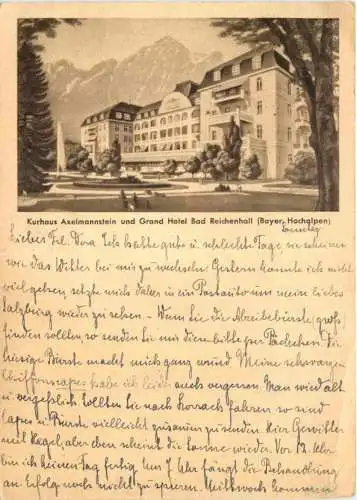 Kurhaus Axelmannstein und Grand Hotel Bad Reichenhall (Bayer. Hochalpen)
Sonntag
Liebes Frl. Dora Ich hatte gute u. schlechte Tage, sie scheinen
wie das Wetter bei mir zu wechseln. Gestern konnte ich nicht
viel gehen, setzte mich daher in ein Postauto um mein liebes
Salzburg wieder zu sehen. – Wenn Sie die Abreibebürste
finden sollten, so senden Sie mir diese bitte per Päckchen. Die
hiesige Bürste macht mich ganz wund. Meine schwarzen
habe ich leider auch vergessen. Man wird alt
u. vergeßlich. Sollten Sie nach fahren so sind
u. Bürste vielleicht zusammen zu senden. Hier Gewitter
und Regel, aber eben scheint die Sonne wieder. Vor 12 Uhr
bin ich keinen Tag fertig, um 7 Uhr fängt die Behandlung
an. Erfolg noch nicht zu spüren. Mittwoch kommen